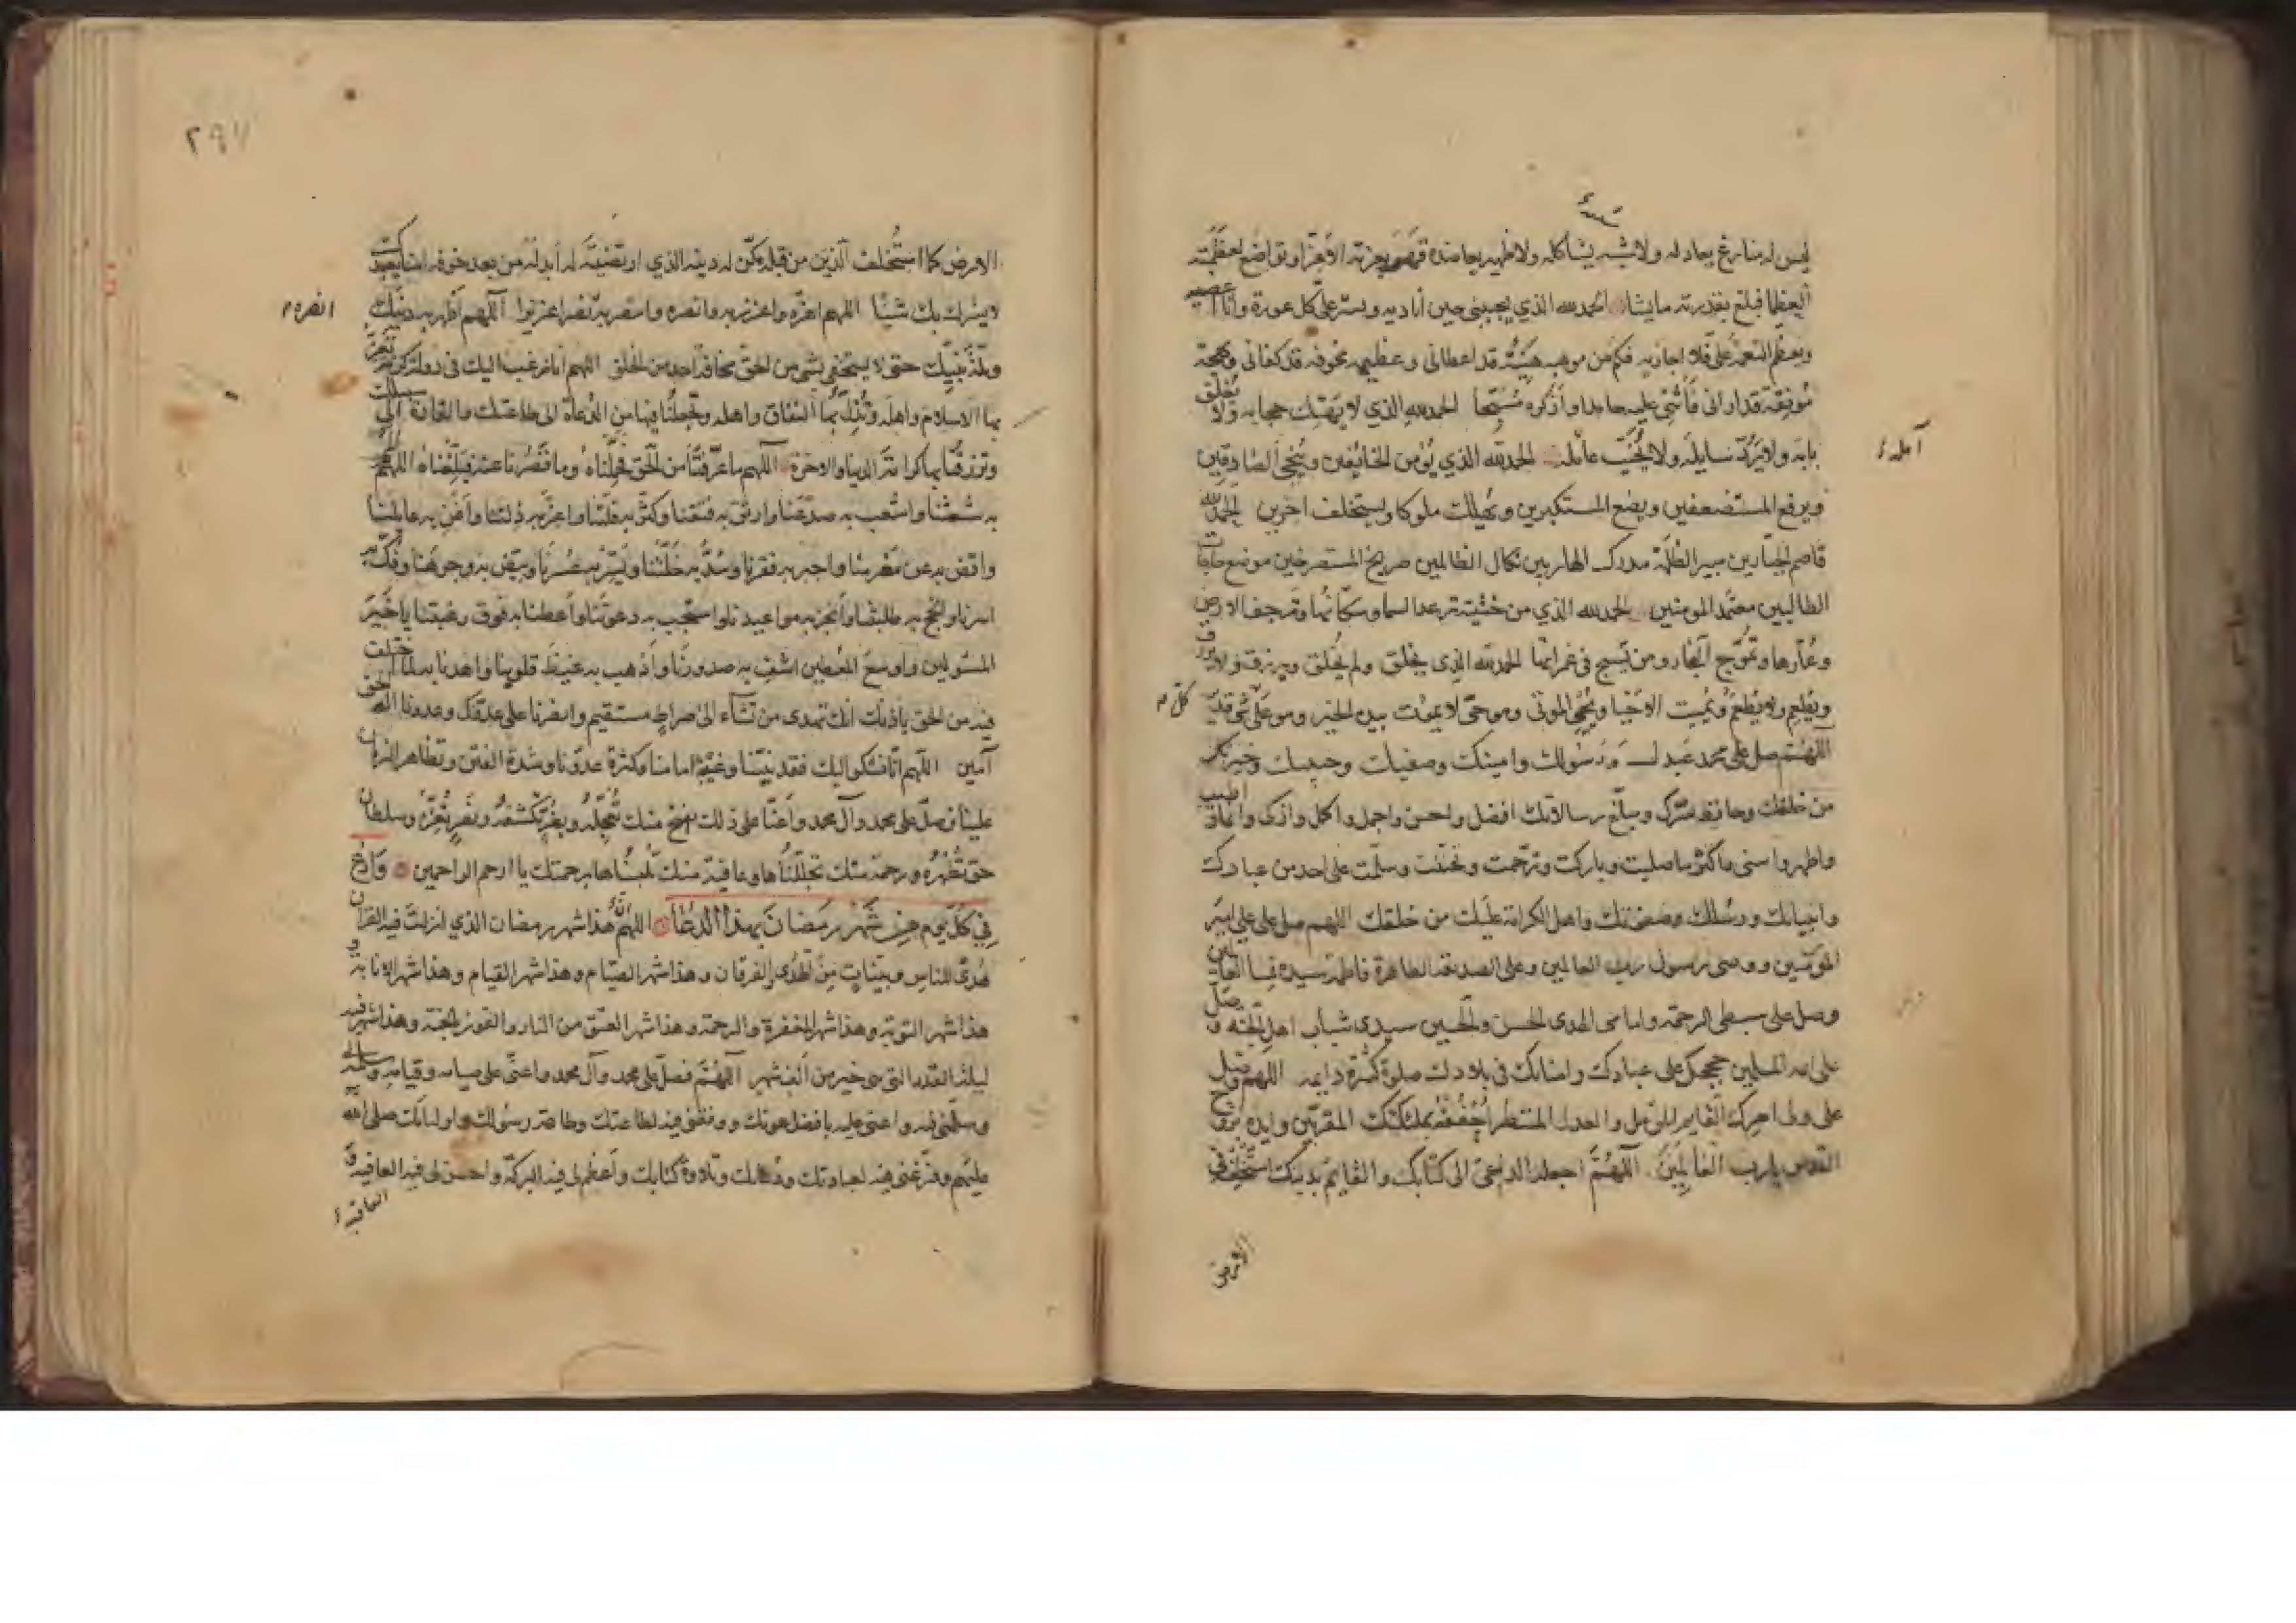 ليس له منازع يعادله ولا شبيه يشاكله ولا ظهير يعاضده قهر بعزته الاعزاء وتواضع لعظمته
العظما فبلغ بقدرته ما يشا الحمد لله الذي يجيبني حين أناديه ويستر علي كل عورة وأنا أعصيه
ويعظم النعمة علي فلا اجازيه فكم من موهبة هنيئة قد اعطاني وعظيمة مخوفة قد كفاني وبهجة
مونقة قد اراني فأثني عليه حامدا وأذكره مسبحا الحمد لله الذي لا يهتك حجابه ولا يغلق
بابه ولا يرد سايله ولا يخيب عامله الحمد لله الذي يؤمن الخائفين وينجي الصادقين
آمله
ويرفع المستضعفين ويضع المستكبرين ويهلك ملوكا ويستخلف اخرين الحمد لله
قاصم الجبارين مبير الظلمة مدرك الهاربين نكال الظالمين صريخ المستصرخين موضع حاجات
الطالبين معتمد المومنين الحمد لله الذي من خشيته ترعد السما وسكانها وترجف الارض
وعمارها وتموج البحار ومن يسبح في غمراتها الحمد لله الذي يخلق ولم يخلق ويرزق ولا يرزق
ويطعم ولا يطعم ويميت الاحيا ويحيي الموتى وهو حي لا يموت بيده الخير وهو على شي قدير
كل
اللهم صل على محمد عبدك ورسولك وامينك وصفيك وحبيبك وخيرتك
من خلقك وحافظ سرك ومبلغ رسالاتك افضل واحسن واجمل واكمل وازكى وانما واطيب
واطهر واسنى واكثر ما صليت وباركت وترحمت وتحننت وسلمت على احد من عبادك
وانبيائك ورسلك وصفوتك واهل الكرامة عليك من خلقك اللهم صل على علي امير
المومنين ووصي رسول رب العالمين وعلى الصديقة الطاهرة فاطمة سيدة نسا العالمين
وصل على سبطي الرحمة وامامي الهدى الحسن والحسين سيدي شباب اهل الجنة وصل
على ائمة المسلمين حججك على عبادك وامنائك في بلادك صلوة كثيرة دايمة اللهم وصل
على ولي امرك القايم المؤمل والعدل المنتظر احففه بملئكتك المقربين وايده بروح
القدس يا رب العالمين اللهم اجعله الداعي الى كتابك والقايم بدينك استخلفه في
الارض
الارض كما استخلفت الذين من قبله مكن له دينه الذي ارتضيته له أبدله من بعد خوفه امنا يعبدك
لا يشرك بك شيئا اللهم اعزه واعزز به وانصره وانتصر به نصرا عزيزا اللهم أظهر به دينك
انصره
وملة نبيك حتى لا يستخفي بشي من الحق مخافة احد من الخلق اللهم انا نرغب اليك في دولة كريمة تعز
بها الاسلام واهله وتذل بها النفاق واهله وتجعلنا فيها من الدعاة الى طاعتك والقادة الى سبيلك
وترزقنا بها كرامة الدنيا والاخرة اللهم ما عرفتنا من الحق فحملناه وما قصرنا عنه فبلغناه اللهم المم
به شعثنا واشعب به صدعنا وارتق به فتقنا وكثر به قلتنا واعز به ذلتنا وأغن به عايلنا
واقض به عن مغرمنا واجبر به فقرنا وسد به خلتنا ويسر به عسرنا وبيض به وجوهنا وفك به
اسرنا وانجح به طلبتنا وأنجز به مواعيدنا واستجب به دعوتنا وأعطنا به فوق رغبتنا يا خير
المسئولين واوسع المعطين اشف به صدورنا وأذهب به غيظ قلوبنا واهدنا به لما اختلف
فيه من الحق باذنك انك تهدي من تشآء الى صراط مستقيم وانصرنا على عدوك وعدونا اله الحق
آمين اللهم انا نشكو اليك فقد نبينا وغيبة امامنا وكثرة عدونا وشدة الفتن وتظاهر الزمان
علينا فصل على محمد وآل محمد وأعنا على ذلك بفتح منك تعجله وبضر تكشفه ونصر تعزه وسلطان
حق تظهره ورحمة منك تجللناها وعافية منك تلبسناها برحمتك يا ارحم الراحمين وادع
في كل يوم من شهر رمضان بهذا الدعا اللهم هذا شهر رمضان الذي انزلت فيه القرآن
هدى للناس وبينات من الهدى والفرقان وهذا شهر الصيام وهذا شهر القيام وهذا شهر الانابة و
هذا شهر التوبة وهذا شهر المغفرة والرحمة وهذا شهر العتق من النار والفوز بالجنة وهذا شهر فيه
ليلة القدر التي هي خير من ألف شهر اللهم فصل على محمد وآل محمد واعني على صيامه وقيامه وسلمه لي
وسلمني فيه واعني عليه بافضل عونك ووفقني فيه لطاعتك وطاعة رسولك واوليائك صلى الله
عليهم وفرغني فيه لعبادتك ودعائك وتلاوة كتابك وأعظم لي فيه البركة واحسن لي فيه العافية
العافية